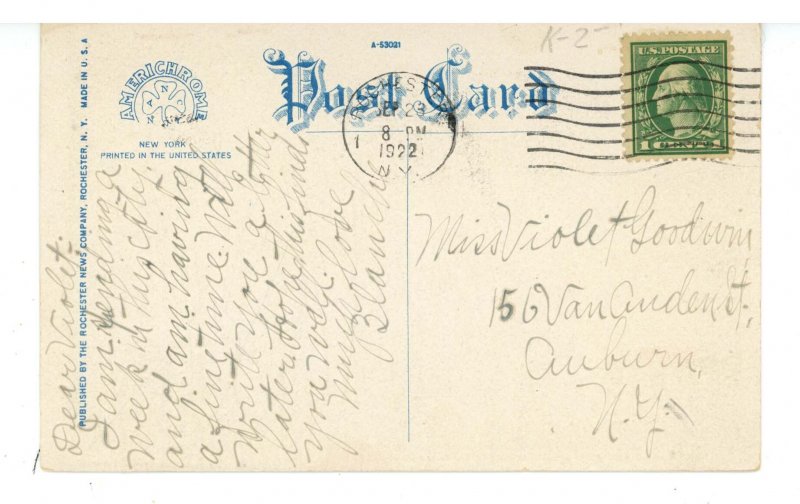 A-53021
K-2-
Post Card
AMERICHROME
ANN
NEW YORK
PRINTED IN THE UNITED STATES
PUBLISHED BY THE ROCHESTER NEWS COMPANY, ROCHESTER, N. Y. MADE IN U. S. A
SEP 23
8 PM
1922
N.Y.
1
U.S. POSTAGE
1 CENT 1
Dear Violet:
I am spending a
week in this city.
and am having
a fine time. Will
write you a letter
later. Hope this finds
you well.
Much love
Blanche
Miss Violet Goodwin,
156 Van Anden St.,
Auburn,
N.Y.